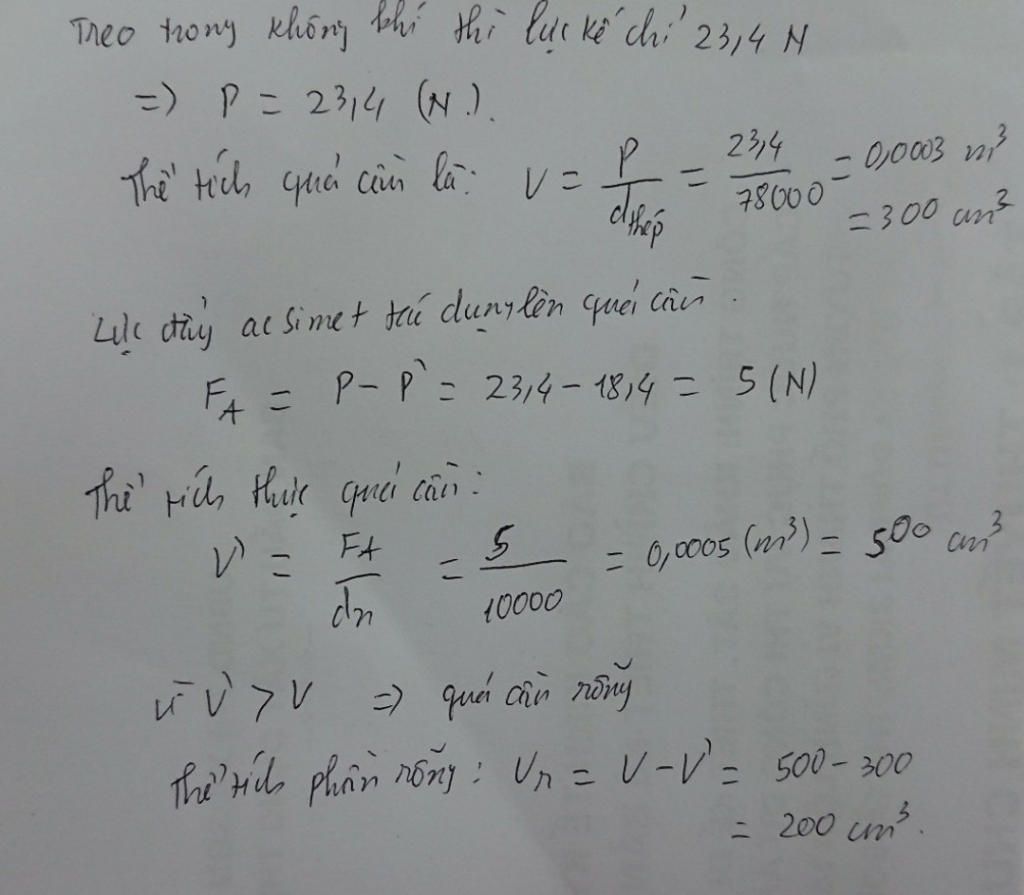 Treo trong không khí thì lực kế chỉ 23,4 N
=> P = 23,4 (N).
Thể tích quả cầu là: V = P/d thép = 23,4/78000 = 0,0003 m³
= 300 cm³
Lực đẩy acsimet tác dụng lên quả cầu.
F_A = P - P' = 23,4 - 18,4 = 5 (N)
Thể tích thực quả cầu:
V' = FA/dn = 5/10000 = 0,0005 (m³) = 500 cm³
vì V' > V => quả cầu rỗng
Thể tích phần rỗng: Vr = V - V' = 500 - 300
= 200 cm³.